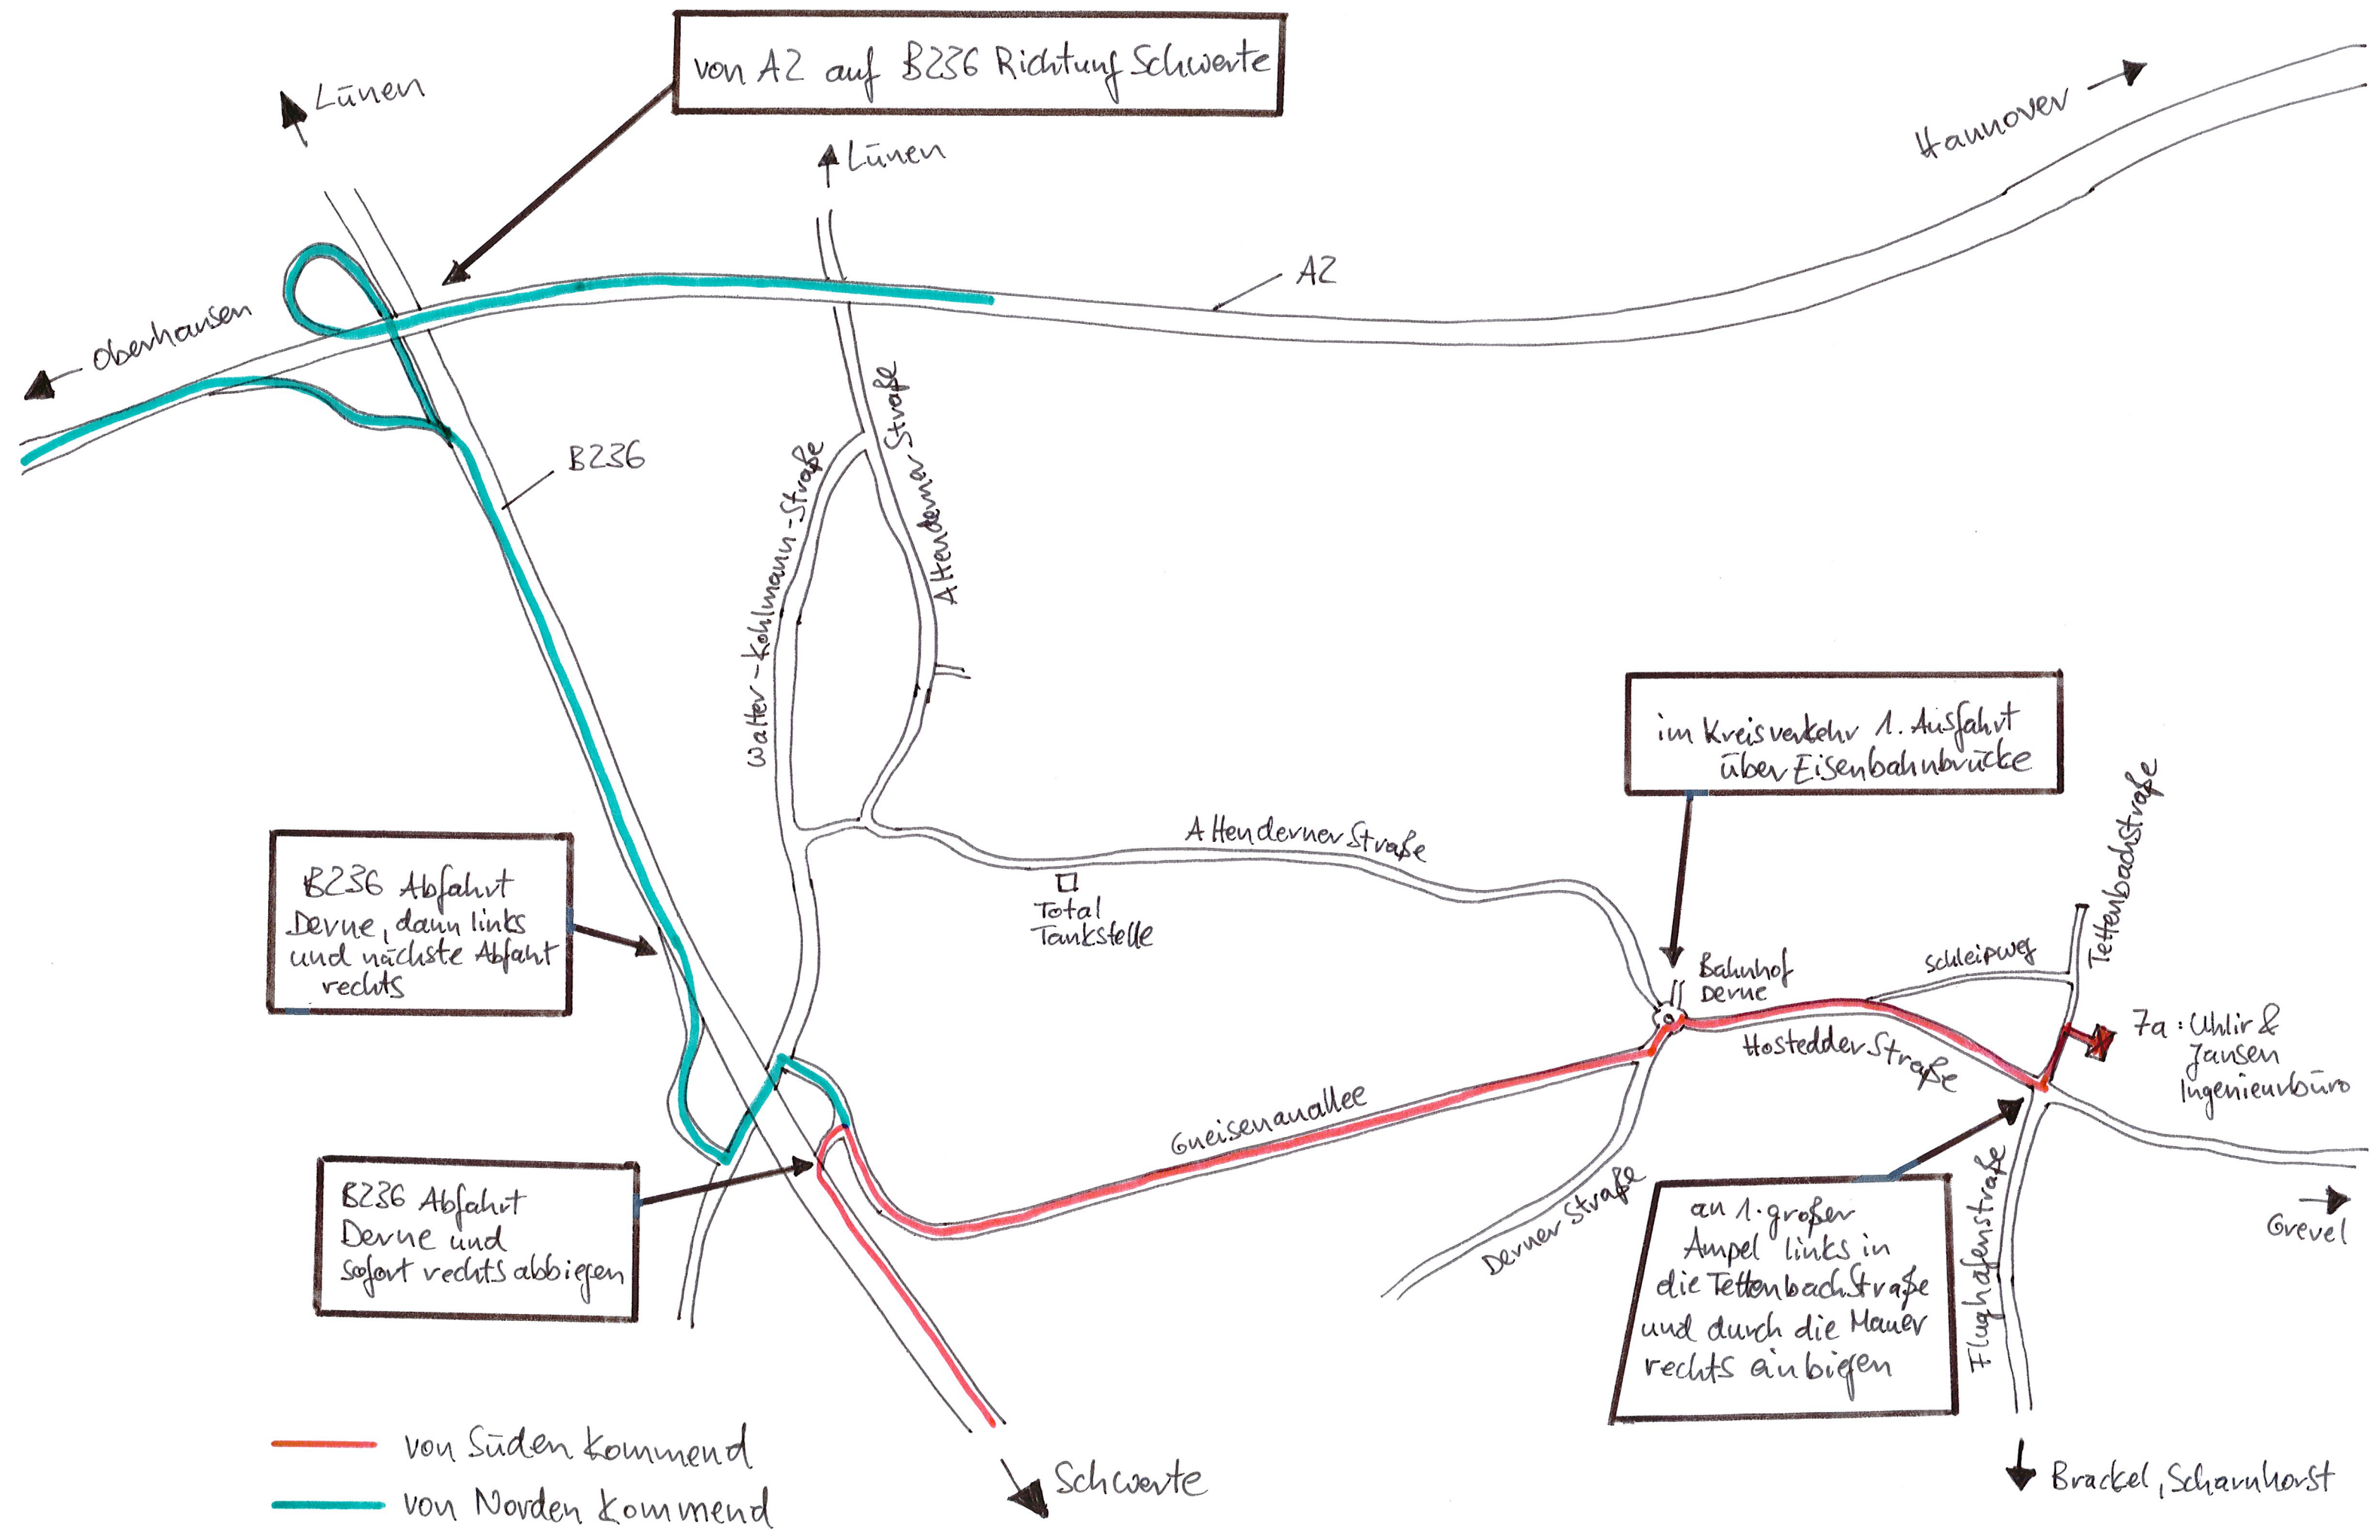 von A2 auf B236 Richtung Schwerte
Lünen
Lünen
Hannover
A2
Oberhausen
B236
Walter-Kohlmann-Straße
Altenderner Straße
im Kreisverkehr 1. Ausfahrt
über Eisenbahnbrücke
Altenderner Straße
Total
Tankstelle
B236 Abfahrt
Derne, dann links
und nächste Abfahrt
rechts
Bahnhof
Derne
Schleipweg
Tettenbachstraße
Hostedder Straße
7a: Uhlir &
Jansen
Ingenieurbüro
Gneisenauallee
B236 Abfahrt
Derne und
sofort rechts abbiegen
Derner Straße
an 1. großer
Ampel links in
die Tettenbachstraße
und durch die Mauer
rechts einbiegen
Flughafenstraße
Grevel
von Süden kommend
von Norden kommend
Schwerte
Brackel, Scharnhorst